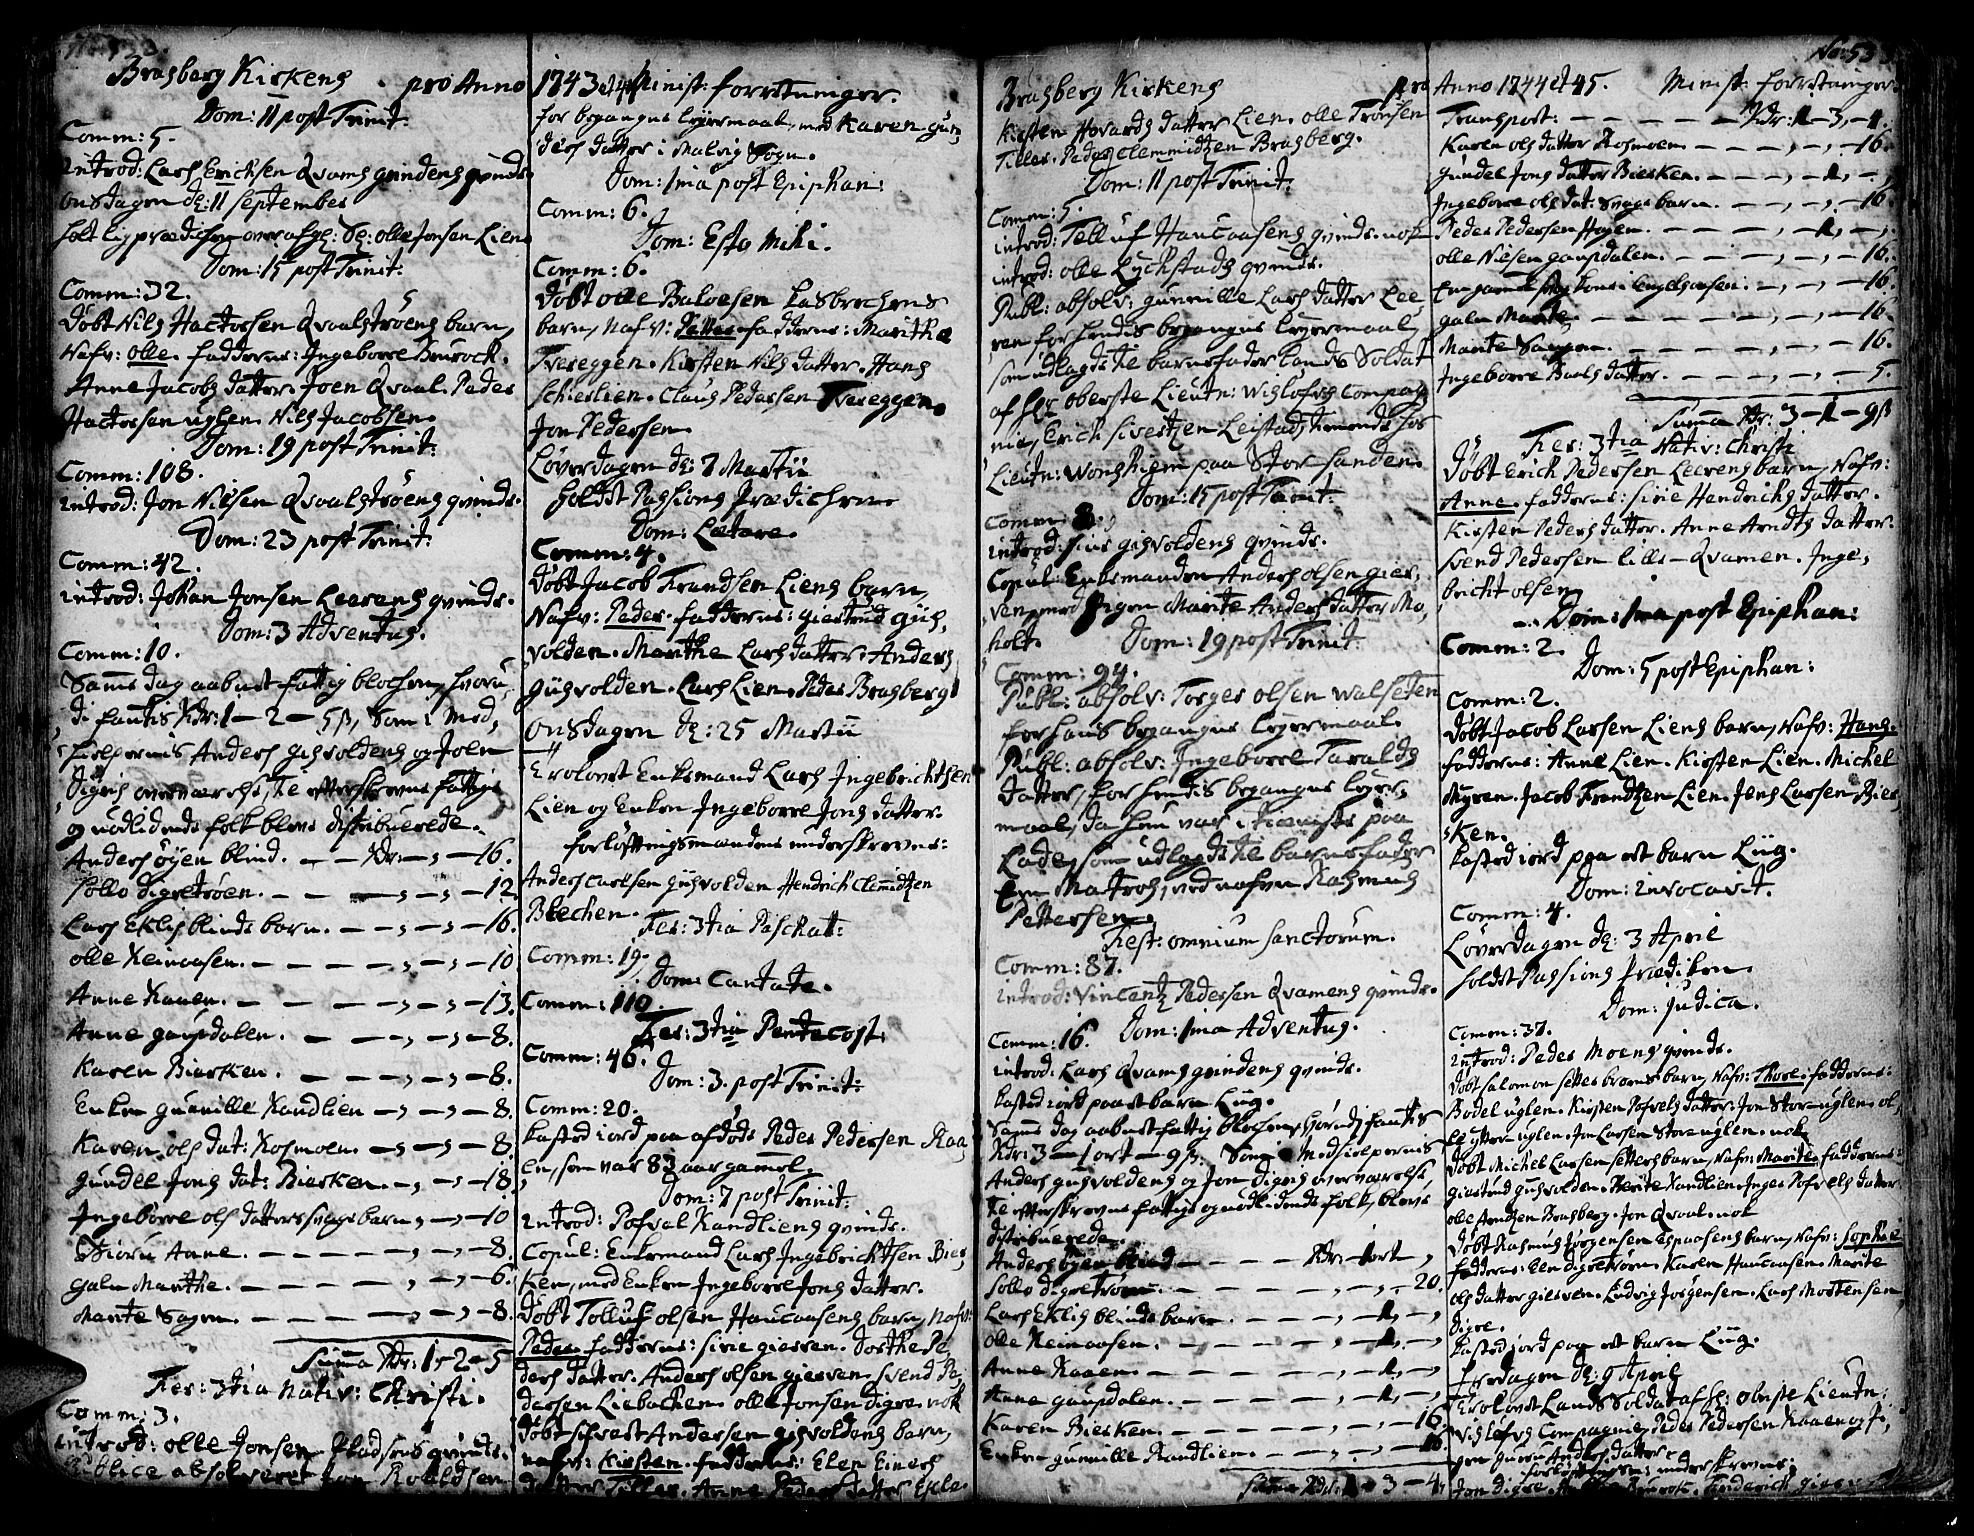 Bragberg Kirkens pro Anno 1743 et 44 Minist: forretninger.
Dom: 11 post Trinit:
Comm: 5.
introd: Lars Ericksen Qvamsgrindens qvinde.
Onsdagen d: 11 September
holt ligprædichen over afg: Sl: Olle Jonsen Lien
Dom: 15 post Trinit:
Comm: 32.
Døbt Nils Hactorsen Qvaalstrøens barn,
Nafv: Olle. fadderne: Ingeborre
Anne Jacobs datter. Joen Qvaal. Peder
Hactorsen uglen. Nils Jacobsen.
Dom: 19 post Trinit:
Comm: 108.
introd: Jon Nilsen Qvaalstrøens qvinde.
Dom: 23 post Trinit:
Comm: 42.
introd: Johan Jonsen Leerens qvinde.
Dom: 3 Adventus.
Comm: 10.
Samme dag aabnet fattig blochen, hvoru,
di fantis Rdr: 1 - 2 - 5 ß, som i Med,
hielpernis Anders Gisvoldens og Joen
Digris overværelse, te efterskrevne fattige
og nødlidende folk bleve distribuerede.
Anders öyen blind. — — Rdr: — , — 16.
Sollo digretröen. — — — , — , — 12.
Lars Eklis blinde barn. — — , — , — 16.
Olle Reinaasen. — — — — , — , — 10
Anne Kaaen. — — — — , — , — 13.
Anne gaupdalen. — — — , — , — 8.
Karen Biersken. — — — , — , — 8.
Enken gunnille Randlien — , — , — 8.
Karen ols dat: Rosmoen. — , — , — 8.
Gundel Jons dat: Biersken. — , — , — 18.
Ingeborre ols datters svage barn, — , — 10
Anne. — — — — — , — , — 8.
Galn Marthe. — — — — , — , — 6.
Marite Sagen. — — — — , — , — 8.
Summa Rdr: 1 - 2 - 5
Fer: 3tia Nativ: Christi.
Comm: 3.
introd: Olle Jonsen qvinde.
Publice absolveret Jon
for begangne leyermaal, med Karen gun,
ders datter i Malvig Sogn.
Dom: 1ma post Epiphan:
Comm: 6.
Dom: Esto Mihi.
Comm: 6.
Døbt Olle
barn, Nafv: Petter. fadderne: Marithe
Tvereggen. Kirsten Nils datter. Hans
Schierlien. Claus Pedersen Tvereggen.
Jon Pedersen.
Løverdagen d: 7 Martii
holdt Passions Prædichen.
Dom: Lætare.
Comm: 4.
Døbt Jacob Frandsen Liens barn,
Nafv: Peder. fadderne: giertrud gis,
volden. Marithe Lars datter. Anders
Gisvolden. Lars Lien. Peder Bragberg.
Onsdagen d: 25 Martii
Trolovet Enkemand Lars Ingebrichtsen
Lien og Enken Ingeborre Jons datter.
forløftningsmændene underskrevne:
Anders Gisvolden Hendrich Clemidtzen
Blechen.
Fer: 3tia Paschat:
Comm: 19.
Dom: Cantate.
Comm: 110
Fer: 3tia Pentecost:
Comm: 46.
Dom: 3. post Trinit:
Comm: 20.
kasted iord paa afdøde Peder Pedersen Kaa,
en, som var 83 aar gammel.
Dom: 7 post Trinit:
introd: Pofval Randliens qvinde.
Copul: Enkemand Lars Ingebrichtsen Bier,
ken, med Enken Ingeborre Jons datter.
Døbt Tolluf Olsen Haucaasens barn, Nafv:
Peder. fadderne: Sirie giersven. Dorthe Pe,
ders datter. Anders olsen giersven. Svend Pe,
dersen Liebachen. Olle Jonsen digre. nok
Døbt Sifvert Andersen gisvoldens barn,
nafv: Kirsten. fadderne: Elen Einers
datter Tiller. Anne Peders datter
Bragberg Kirkens pro Anno 1744 et 45. Minist: forretninger
Kirsten Hovards datter Lien. Olle Tronsen
Tiller. Peder Clemmidtzen Bragberg.
Dom: 11 post Trinit:
Comm: 5.
introd: Tolluf Haucaasens qvinde. nok
introd: Olle Lyckstads qvinde.
Publ: absolv: Gunnille Lars datter Lee
ren for hendis begangne leyermaal,
som udlagde te barnefader Lands Soldat
af Hr oberste Lieutn: Wislofvs Compag
nie, Erick Sivertzen Leistad, tienende hos
Lieutn: paa Stor Sanden.
Dom: 15 post Trinit:
Comm: 8.
introd: gisvoldens qvinde.
Copul: Enkemanden Anders Olsen gier,
ven, med Pigen Marite Anders datter Mo,
holt.
Dom: 19 post Trinit:
Comm: 94.
Publ: absolv: Torger Olsen Walseten
for hans begangne leyermaal.
Publ: absolv: Ingeborre Taralds
datter, for hendis begangne leyer,
maal, da hun var i tieniste paa
Lade, som udlagde te barnefader
Een Matros, ved nafn Rasmus
Pettersen.
Fest: omnium Sanctorum.
Comm: 87.
introd: Vincentz Pedersen Qvamens qvinde.
Dom: 1ma Adventus.
Comm: 16.
introd: Lars Qvamsgrindens qvinde.
kasted iord paa et barn Liig.
Samme dag aabnet fattig blochen, hvoru di fantis
Rdr: 3 — 1 ort — 9 ß. Som i Medhielpernis
Anders gisvoldens og Jon Digris overværelse
te efterskrevne fattige og nødlidende folk, bleve
distribuerede.
Anders öyen blind — — — — Rdr: 1 ort ,
Sollo digretröen. — — — — , — , — 20.
Lars Eklis blinde barn. — — — , — 1. — ,
Olle Reinaasen. — — — — — , — 1. — ,
Anne Kaaen. — — — — — , — 1, — ,
Anne gaupdalen. — — — — , — 1, —
Karen Biersken. — — — — , — , — 16.
Enken gunnille Randlien. — — — , — , — 16.
Summa Rdr: 1 - 3 - 4
Transport: — — — — — Rdr: 1 - 3, - 4.
Karen ols datter Rosmoen. — — — , — , — 16.
Gundel Jons datter Biersken. — — — , — 1, — ,
Ingeborre ols dat: Svage barn. — — , — , — 16.
Peder Pedersen Høyen. — — — — , — 1, — ,
Olle Nilsen gaupdalen. — — — , — , — 16.
En gammel — , — , — 16.
galn Marite. — — — — — , — , — 16.
Marite Sagen. — — — — , — , — 16.
Ingeborre datter. — — — , — , — 5.
Summa Rdr: 3 - 1 - 9 ß
Fer: 3tia Nativ: Christi
Døbt Erick Pedersen Leerens barn, Nafv:
Anne. fadderne: Sirie Hendrichs datter.
Kirsten Peders datter. Anne Arndts datter.
Svend Pedersen Lille-Qvamen. Inge,
bricht olsen.
Dom: 1ma post Epiphan:
Comm: 2.
Dom: 5 post Epiphan:
Comm: 2.
Døbt Jacob Larsen Liens barn, Nafv: Hans.
fadderne: Anne Lien. Kirsten Lien. Michel
Myren. Jacob Frandtzen Lien. Jens Larsen Bier
sken.
kasted iord paa et barn Liig.
Dom: invocavit.
Comm: 4.
Løverdagen d: 3 April
holdt Passions Prædiken.
Dom: judica.
Comm: 37.
introd: Peder Moens qvinde.
Døbt Salomon barn, Nafv: Thore. fadderne:
Bodel uglen. Kirsten Pofvels datter. Jon Stor-uglen. ol,
le ytter-uglen. Jon Larsen Store uglen. nok
Døbt Michel Larsen barn, Nafv: Marite. fadderne:
giertrud gisvolden. Marite Randlien. Inger Pofvels datter.
Olle Arntzen Bragberg. Jon Qvaal. nok
Døbt Rasmus Jørgensen Espaasens barn, Nafv: Sophie
fadderne: Elen digretrøen. Karen Haucaasen. Marite
ols datter giersven. Ludvig Jørgensen. Lars Mortensen
digre.
kasted iord paa et barn Liig.
fredagen d: 9 April
Trolovet Lands Soldat af Hr: Oberste Lieutn:
Wislofvs Compagnie, Peder Pedersen Kaaen og Pi,
gen Guru Anders datter.
forløftningsm: underskrevne:
Jon Digre.